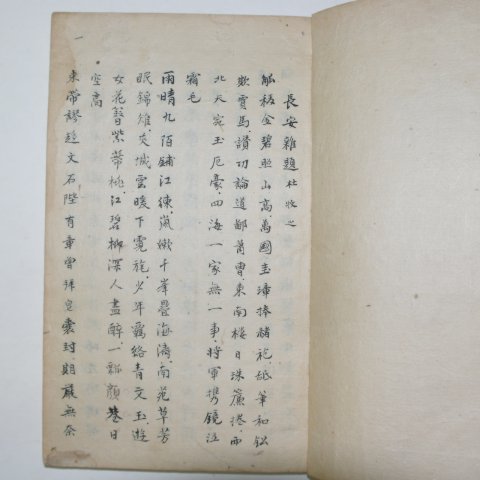 長安雜題 杜牧之
觚稜金碧照山高萬國圭璋捧赭袍舐筆和鈆
欺賈馬讚功論道鄙蕭曹東南樓日珠簾捲西
北天宛玉厄豪四海一家無一事將軍攜鏡泣
霜毛
雨晴九陌鋪江練嵐嫩千峯疊海濤南苑草芳
眠錦雉夾城雲暖下霓旄少年羈絡青文玉遊
女花簪紫蔕桃江碧柳深人盡醉一瓢顔巷日
空高
束帶謬趍文石陛有章曾拜皂囊封期嚴無奈